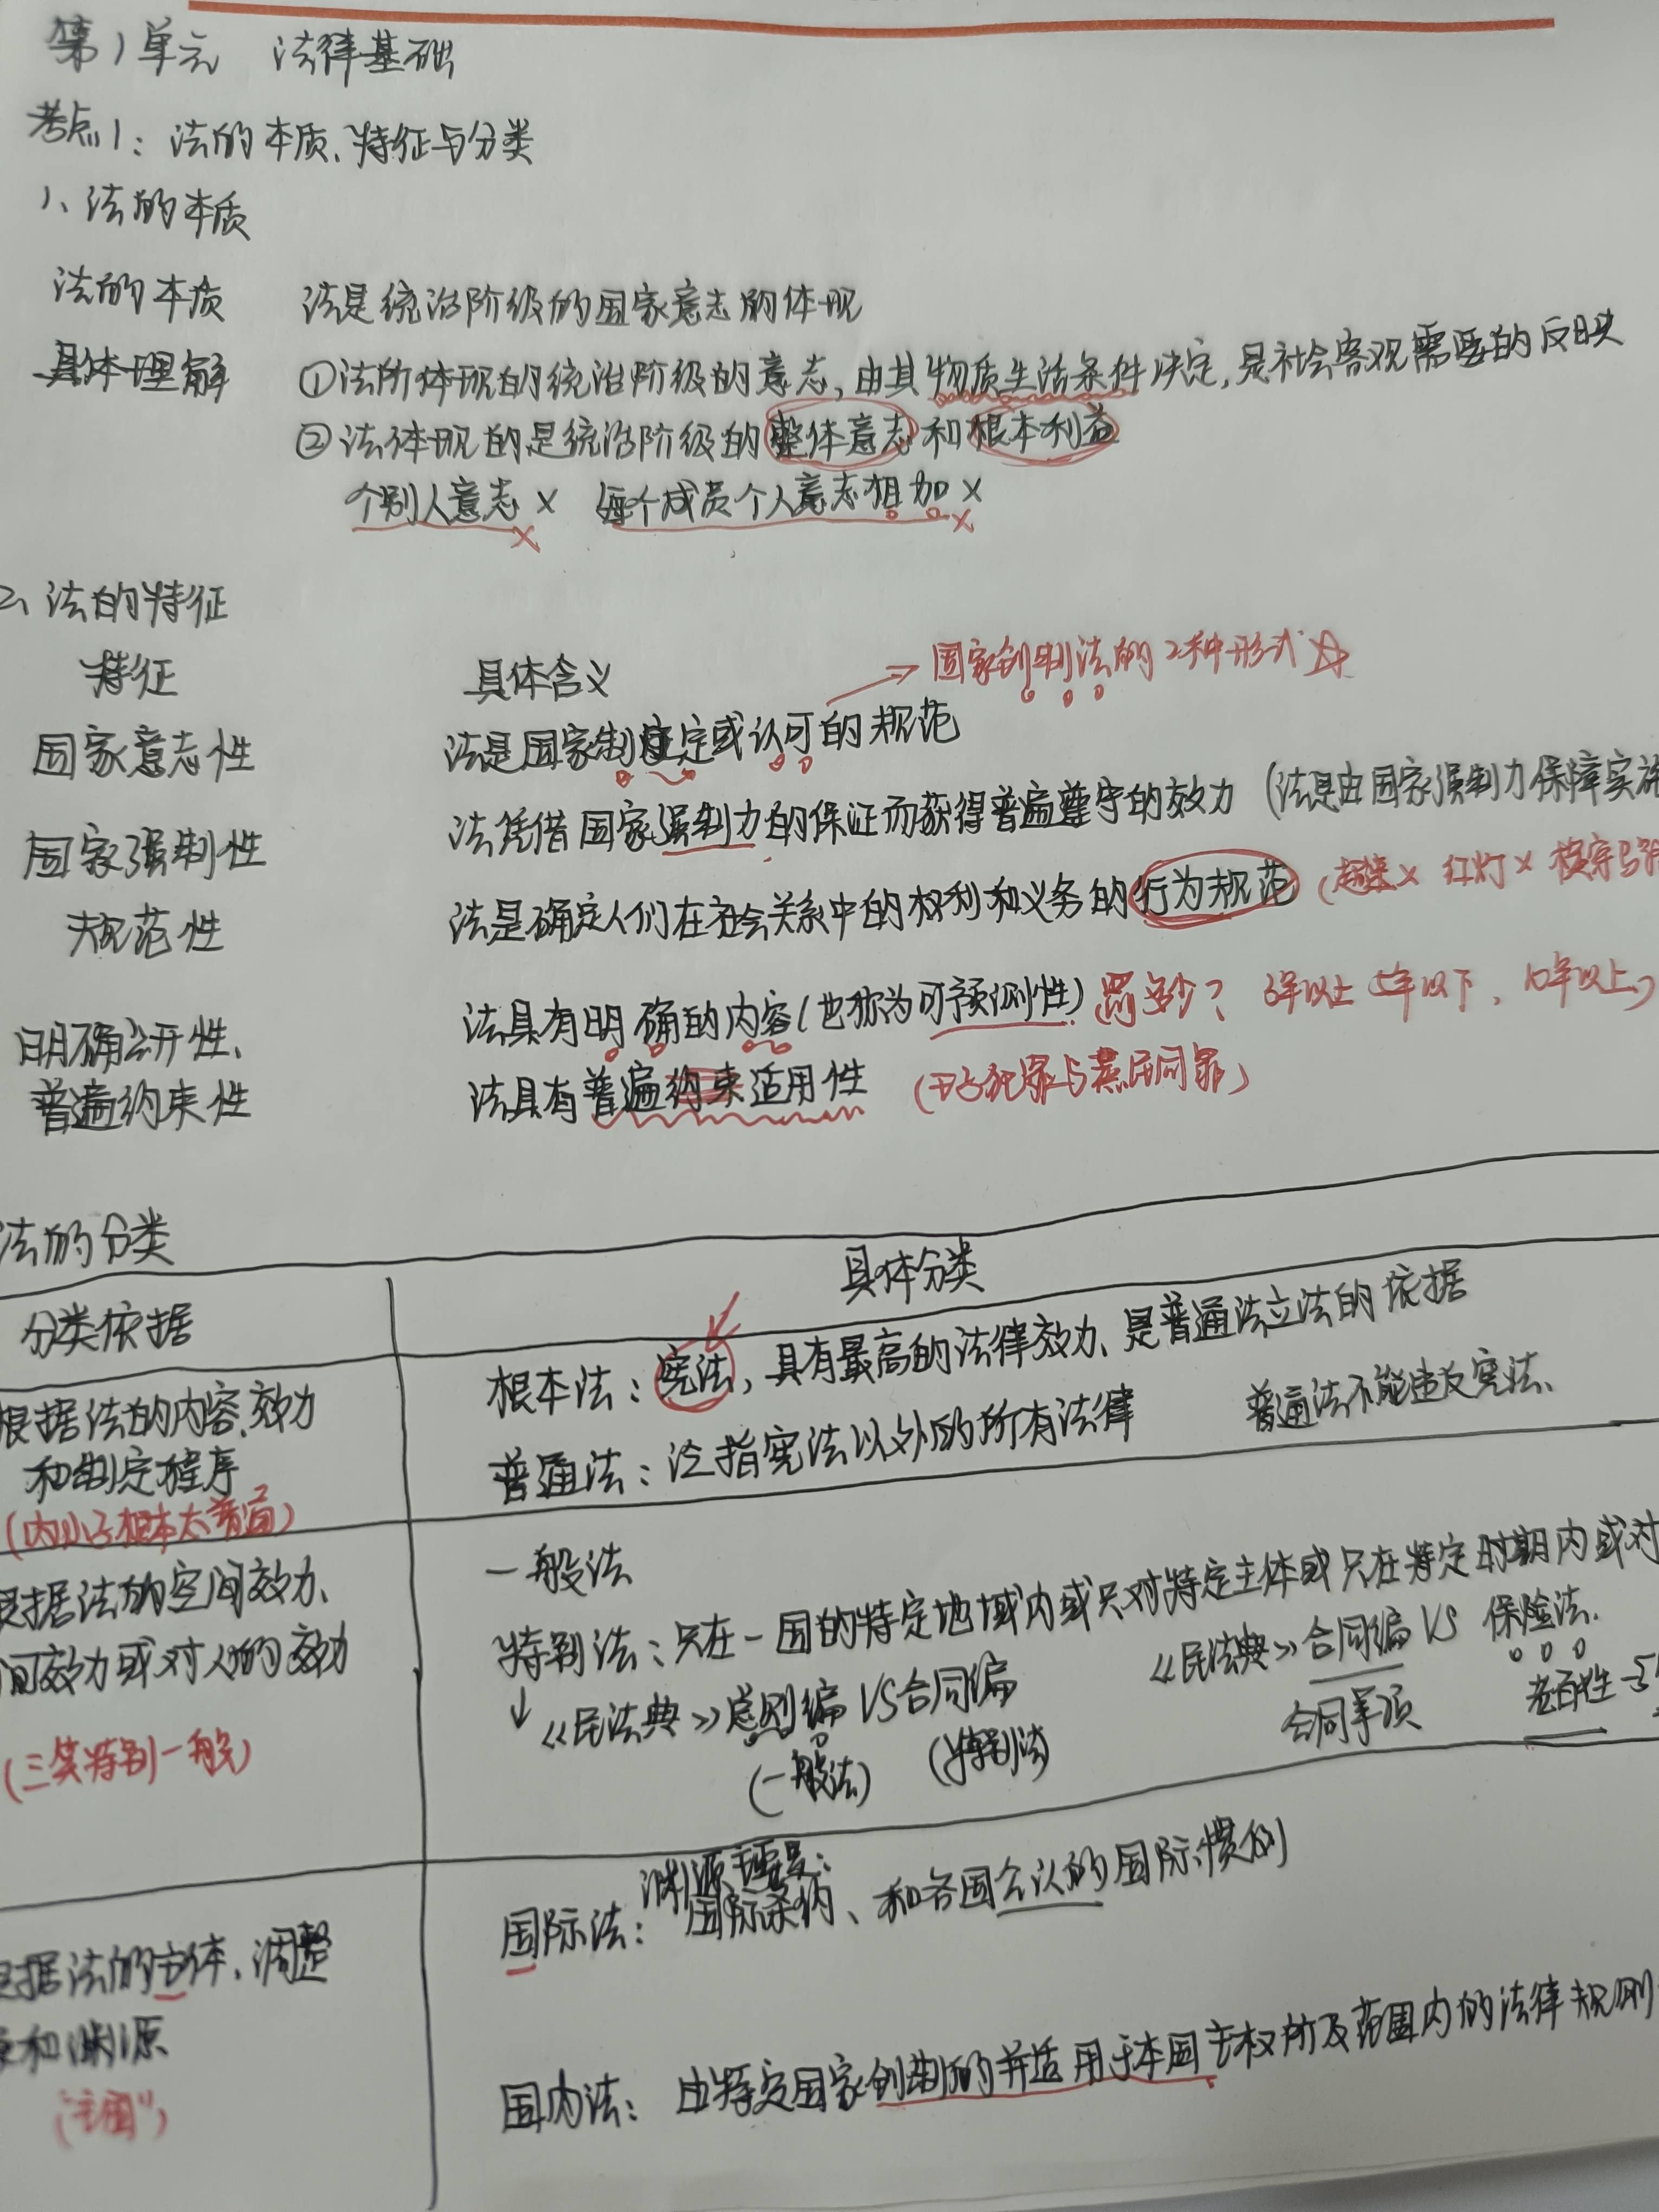 第1单元 法律基础
考点1：法的本质、特征与分类
1、法的本质
法的本质 法是统治阶级的国家意志的体现
具体理解 ①法所体现的统治阶级的意志，由其物质生活条件决定，是社会客观需要的反映
②法体现的是统治阶级的整体意志和根本利益
个别人意志× 每个成员个人意志相加×
2、法的特征
→国家创制法的2种形式☆
特征 具体含义
国家意志性 法是国家制定或认可的规范
国家强制性 法凭借国家强制力的保证而获得普遍遵守的效力（法是由国家强制力保障实施
规范性 法是确定人们在社会关系中的权利和义务的行为规范 × 红灯×
明确公开性、 法具有明确的内容（也称为可预测性）罚多少？ 3年以上 5年以下、10年以上）
普遍约束性 法具有普遍约束适用性 （王子犯罪与庶民同罪）
法的分类
分类依据 具体分类
根据法的内容、效力 根本法：宪法，具有最高的法律效力、是普通法立法的依据
和制定程序 普通法：泛指宪法以外的所有法律 普通法不能违反宪法、
（内小子根本太普通）
根据法的空间效力、 一般法
间效力或对人的效力 特别法：只在一国的特定地域内或只对特定主体或只在特定时期内或对
↓《民法典》总则编 VS 合同编 《民法典》合同编 VS 保险法.
（三笑特别一般） （一般法） （特别法） 合同事项 老百性
渊源主要是：
国际法：国际条约、和各国公认的国际惯例
根据法的主体、调整
和渊源
国内法：由特定国家创制的并适用于本国主权所及范围内的法律规则
（"主国"）